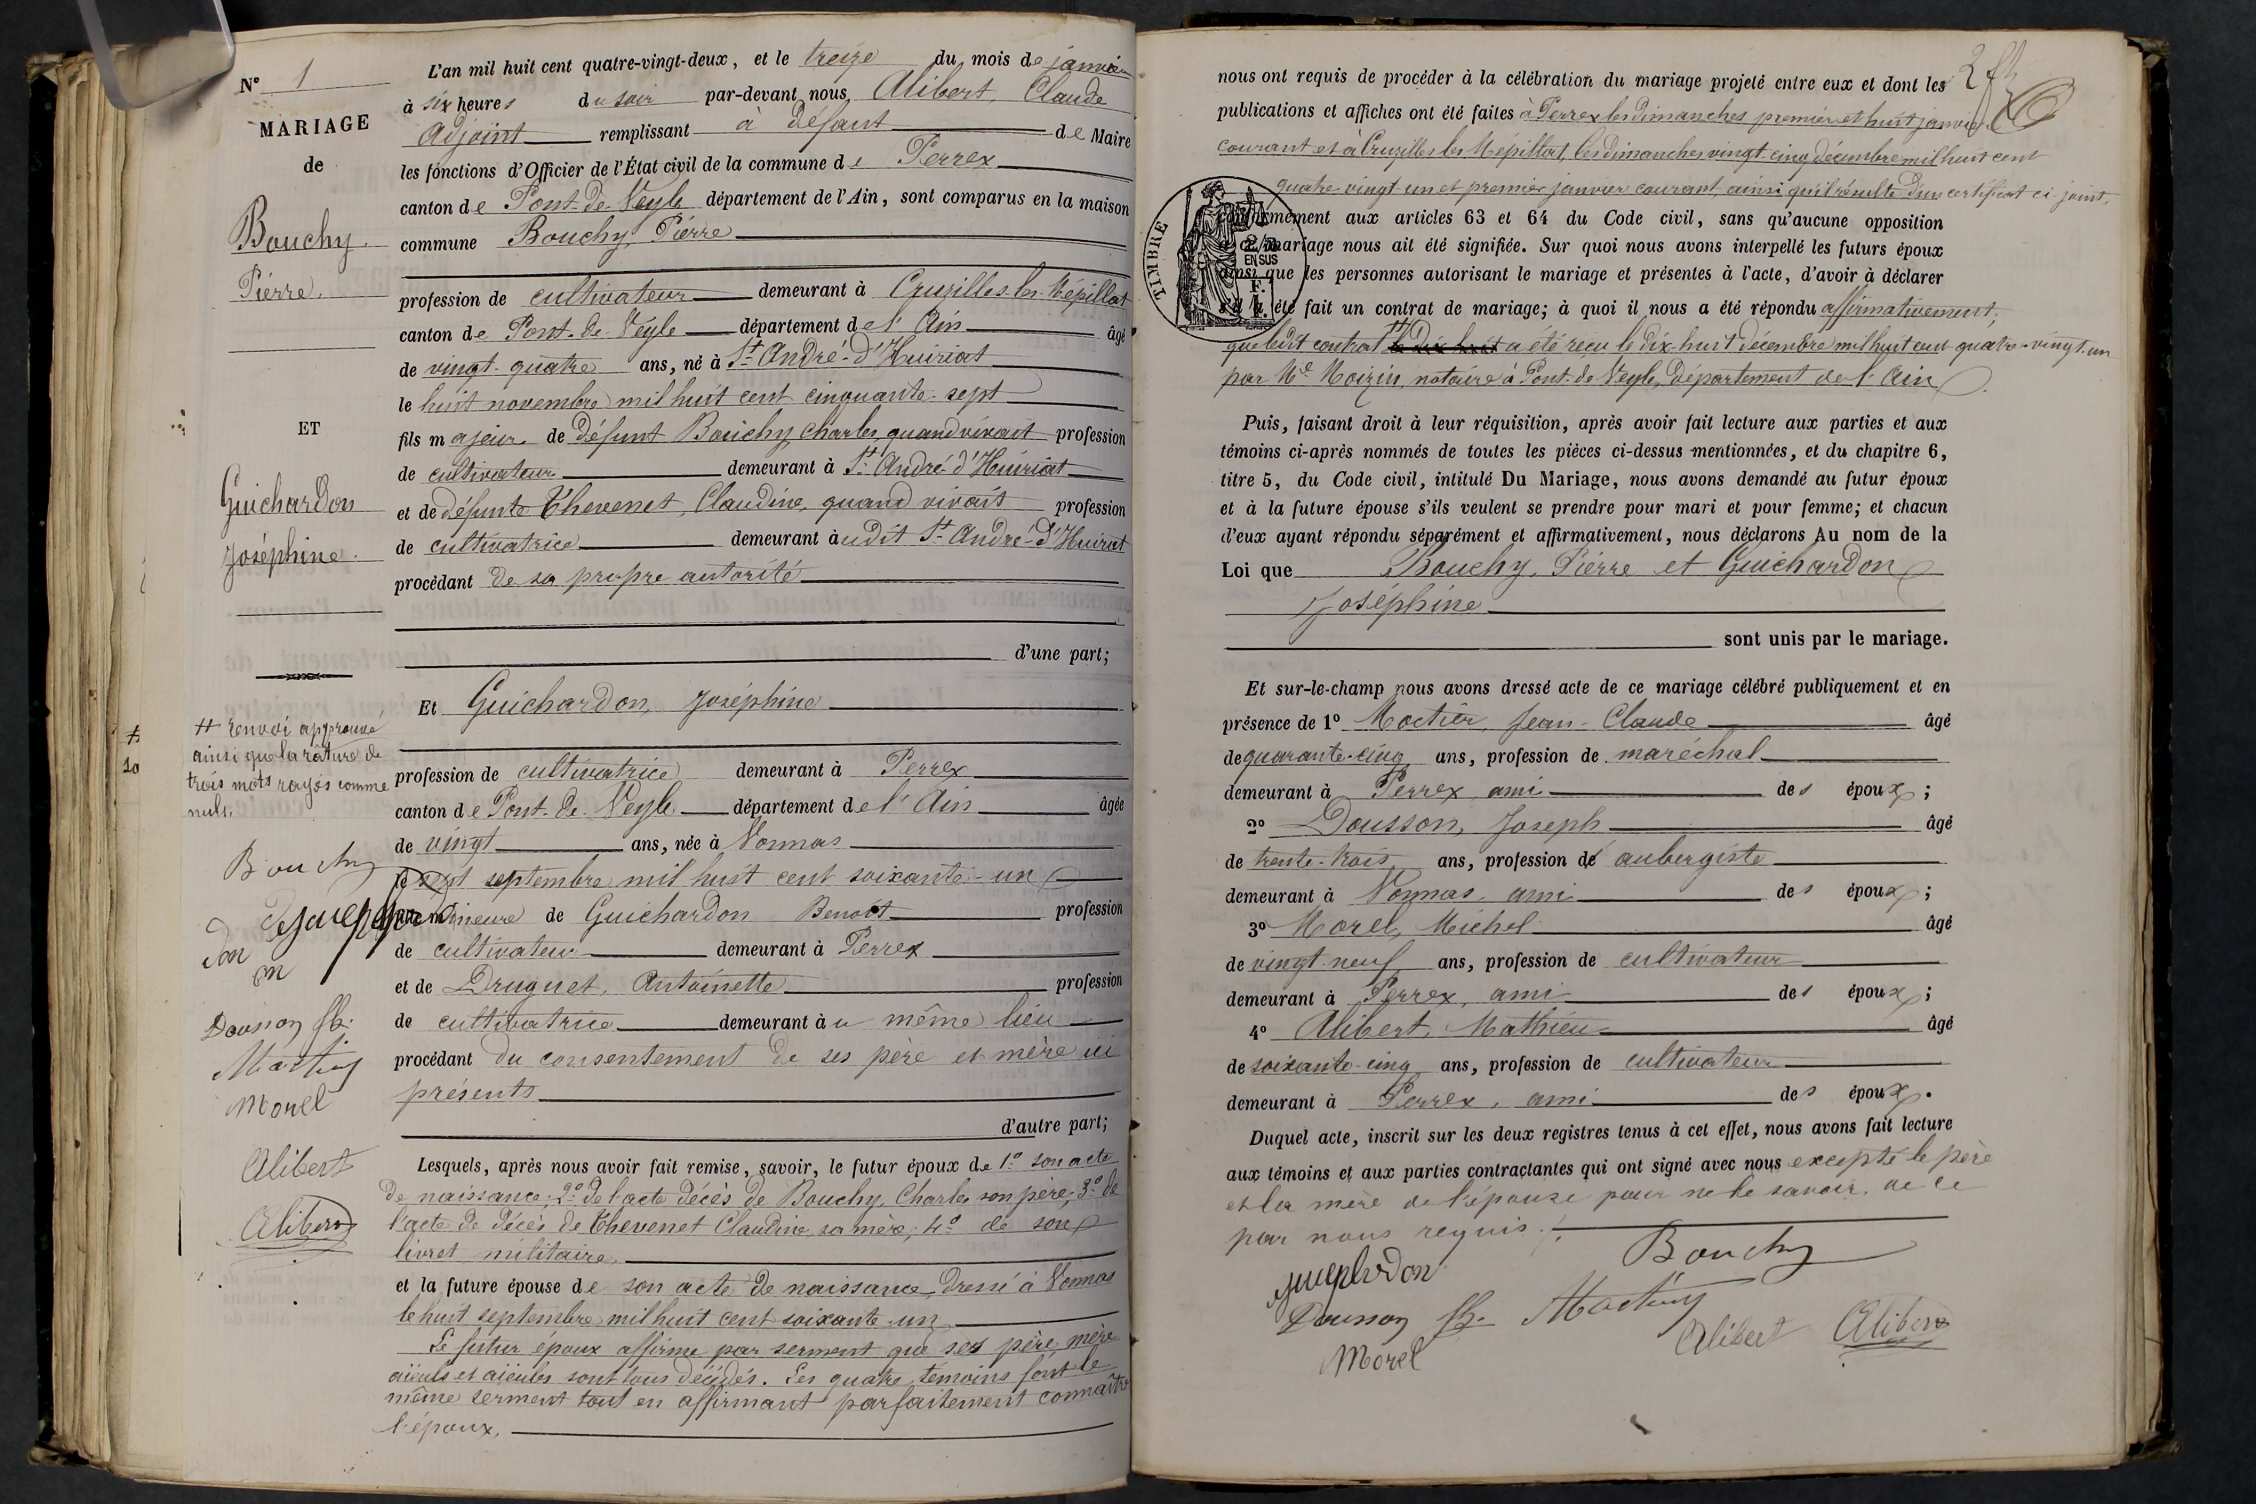 N° 1
MARIAGE
de
Bouchy
Pierre.
ET
Guichardon
Joséphine.
# renvoi approuvé
ainsi que la rature de
trois mots rayés comme
nuls.
Bouchy
don
Dousson Jh.
Morel
Alibert
Alibert
L'an mil huit cent quatre-vingt-deux, et le treize du mois de janvier
à six heures du soir par-devant nous Alibert, Claude
Adjoint remplissant à défaut de Maire
les fonctions d'Officier de l'État civil de la commune de Perrex
canton de Pont-de-Veyle département de l'Ain, sont comparus en la maison
commune Bouchy, Pierre
profession de cultivateur demeurant à Cruzilles-les-Mépillat
canton de Pont-de-Veyle département de l'Ain âgé
de vingt-quatre ans, né à St André-d'Huiriat
le huit novembre mil huit cent cinquante-sept
fils majeur de défunt Bouchy, Charles, quand vivait profession
de cultivateur demeurant à St André-d'Huiriat
et de défunte Thevenet, Claudine, quand vivait profession
de cultivatrice demeurant àudit St André-d'Huiriat
procédant de sa propre autorité
d'une part;
Et Guichardon, Joséphine
profession de cultivatrice demeurant à Perrex
canton de Pont-de-Veyle département de l'Ain âgée
de vingt ans, née à Vonnas
le sept septembre mil huit cent soixante-un
mineure de Guichardon Benoît profession
de cultivateur demeurant à Perrex
et de Druguet, Antoinette profession
de cultivatrice demeurant àu même lieu
procédant du consentement de ses père et mère ici
présents
d'autre part;
Lesquels, après nous avoir fait remise, savoir, le futur époux de 1° son acte
de naissance; 2° de l'acte décès de Bouchy, Charles son père; 3° de
l'acte de décès de Thevenet Claudine, sa mère; 4° de son
livret militaire,
et la future épouse de son acte de naissance, dressé à Vonnas
le huit septembre mil huit cent soixante-un
Le futur époux affirme par serment que ses père, mère
aïeuls et aïeules sont tous décédés. Les quatre témoins font le
même serment tout en affirmant parfaitement connaître
l'époux.
2
nous ont requis de procéder à la célébration du mariage projeté entre eux et dont les
publications et affiches ont été faites à Perrex les dimanches premier et huit janvier
courant et à Cruzilles les Mépillat, les dimanches vingt-cinq décembre mil huit cent
quatre-vingt un et premier janvier courant, ainsi qu'il résulte d'un certificat ci-joint,
conformément aux articles 63 et 64 du Code civil, sans qu'aucune opposition
à ce mariage nous ait été signifiée. Sur quoi nous avons interpellé les futurs époux
ainsi que les personnes autorisant le mariage et présentes à l'acte, d'avoir à déclarer
s'il a été fait un contrat de mariage; à quoi il nous a été répondu affirmativement,
que ledit contrat # le dix huit a été reçu le dix-huit décembre mil huit cent quatre-vingt-un
par Me Moizin, notaire à Pont-de-Veyle, département de l'Ain
TIMBRE
2/10
EN SUS
F.
Puis, faisant droit à leur réquisition, après avoir fait lecture aux parties et aux
témoins ci-après nommés de toutes les pièces ci-dessus mentionnées, et du chapitre 6,
titre 5, du Code civil, intitulé Du Mariage, nous avons demandé au futur époux
et à la future épouse s'ils veulent se prendre pour mari et pour femme; et chacun
d'eux ayant répondu séparément et affirmativement, nous déclarons Au nom de la
Loi que Bouchy, Pierre et Guichardon
Joséphine
sont unis par le mariage.
Et sur-le-champ nous avons dressé acte de ce mariage célébré publiquement et en
présence de 1° Jean-Claude âgé
de quarante-cinq ans, profession de maréchal
demeurant à Perrex, ami des époux;
2° Dousson, Joseph âgé
de trente-trois ans, profession dé aubergiste
demeurant à Vonnas, ami des époux;
3° Morel, Michel âgé
de vingt-neuf ans, profession de cultivateur
demeurant à Perrex, ami des époux;
4° Alibert, Mathieu âgé
de soixante-cinq ans, profession de cultivateur
demeurant à Perrex, ami des époux.
Duquel acte, inscrit sur les deux registres tenus à cet effet, nous avons fait lecture
aux témoins et aux parties contractantes qui ont signé avec nous excepté le père
et la mère de l'épouse pour ne le savoir, de ce
par nous requis.
Bouchy
Dousson Jh.
Alibert Alibert
Morel